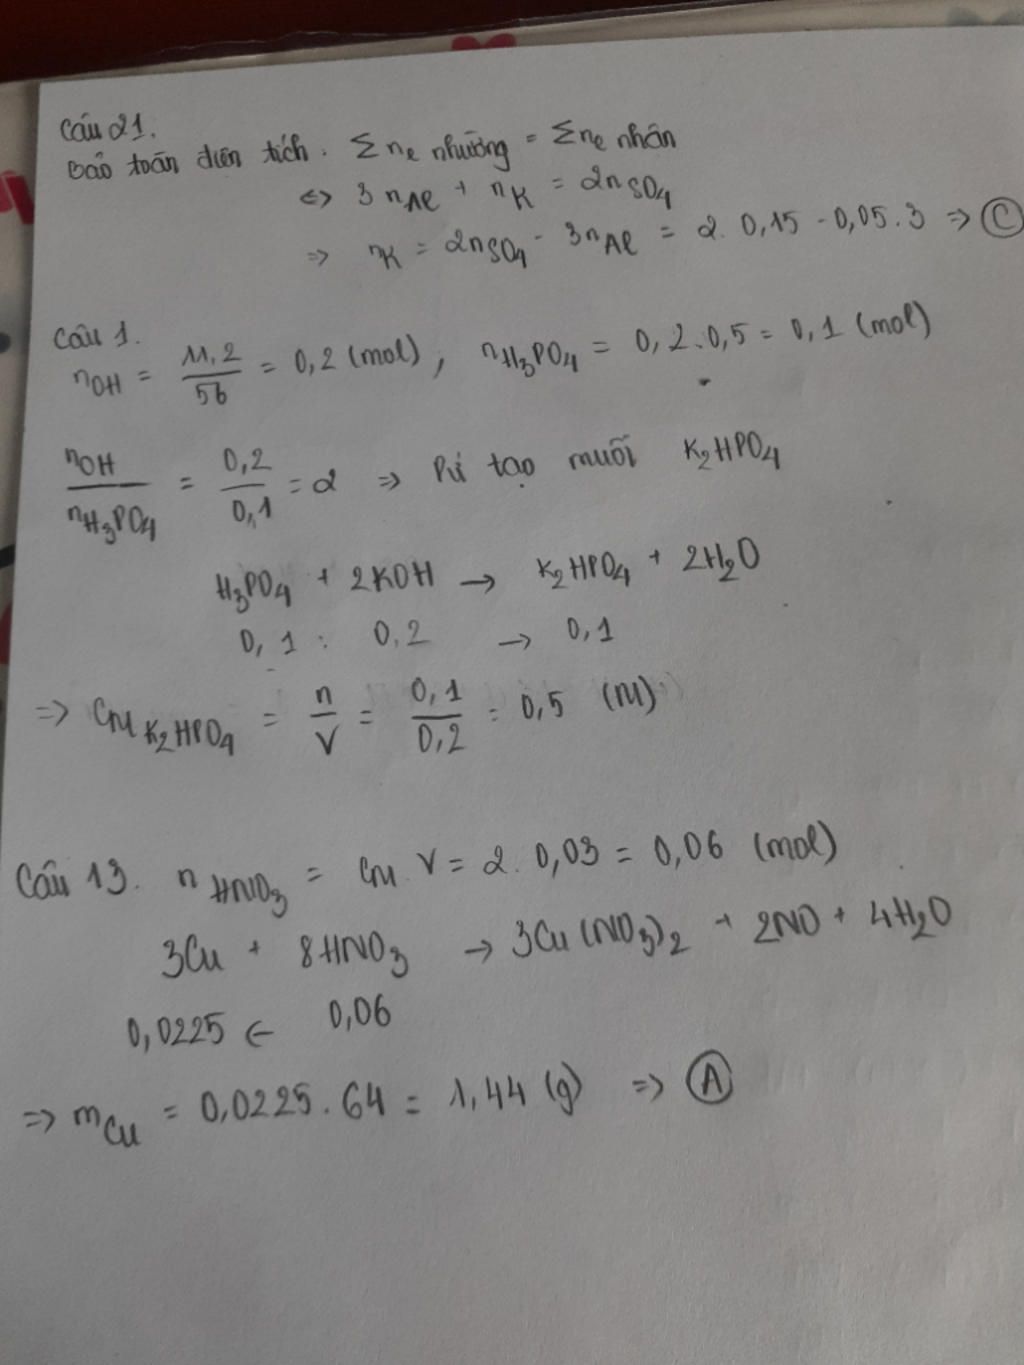 Câu 21.
Bảo toàn điện tích. Σ ne nhường = Σne nhân
<=> 3 nAl + nK = 2nSO4
=> nK = 2nSO4 - 3nAl = 2. 0,15 - 0,05.3 => C
Câu 1.
nOH = 11,2/56 = 0,2 (mol) ; nH3PO4 = 0,2.0,5 = 0,1 (mol)
nOH/nH3PO4 = 0,2/0,1 = 2 => Pứ tạo muối K2HPO4
H3PO4 + 2KOH → K2HPO4 + 2H2O
0,1 : 0,2 → 0,1
=> CM K2HPO4 = n/V = 0,1/0,2 = 0,5 (M)
Câu 13. nHNO3 = CM.V = 2.0,03 = 0,06 (mol)
3Cu + 8HNO3 → 3Cu(NO3)2 + 2NO + 4H2O
0,0225 ← 0,06
=> mCu = 0,0225.64 = 1,44 (g) => A